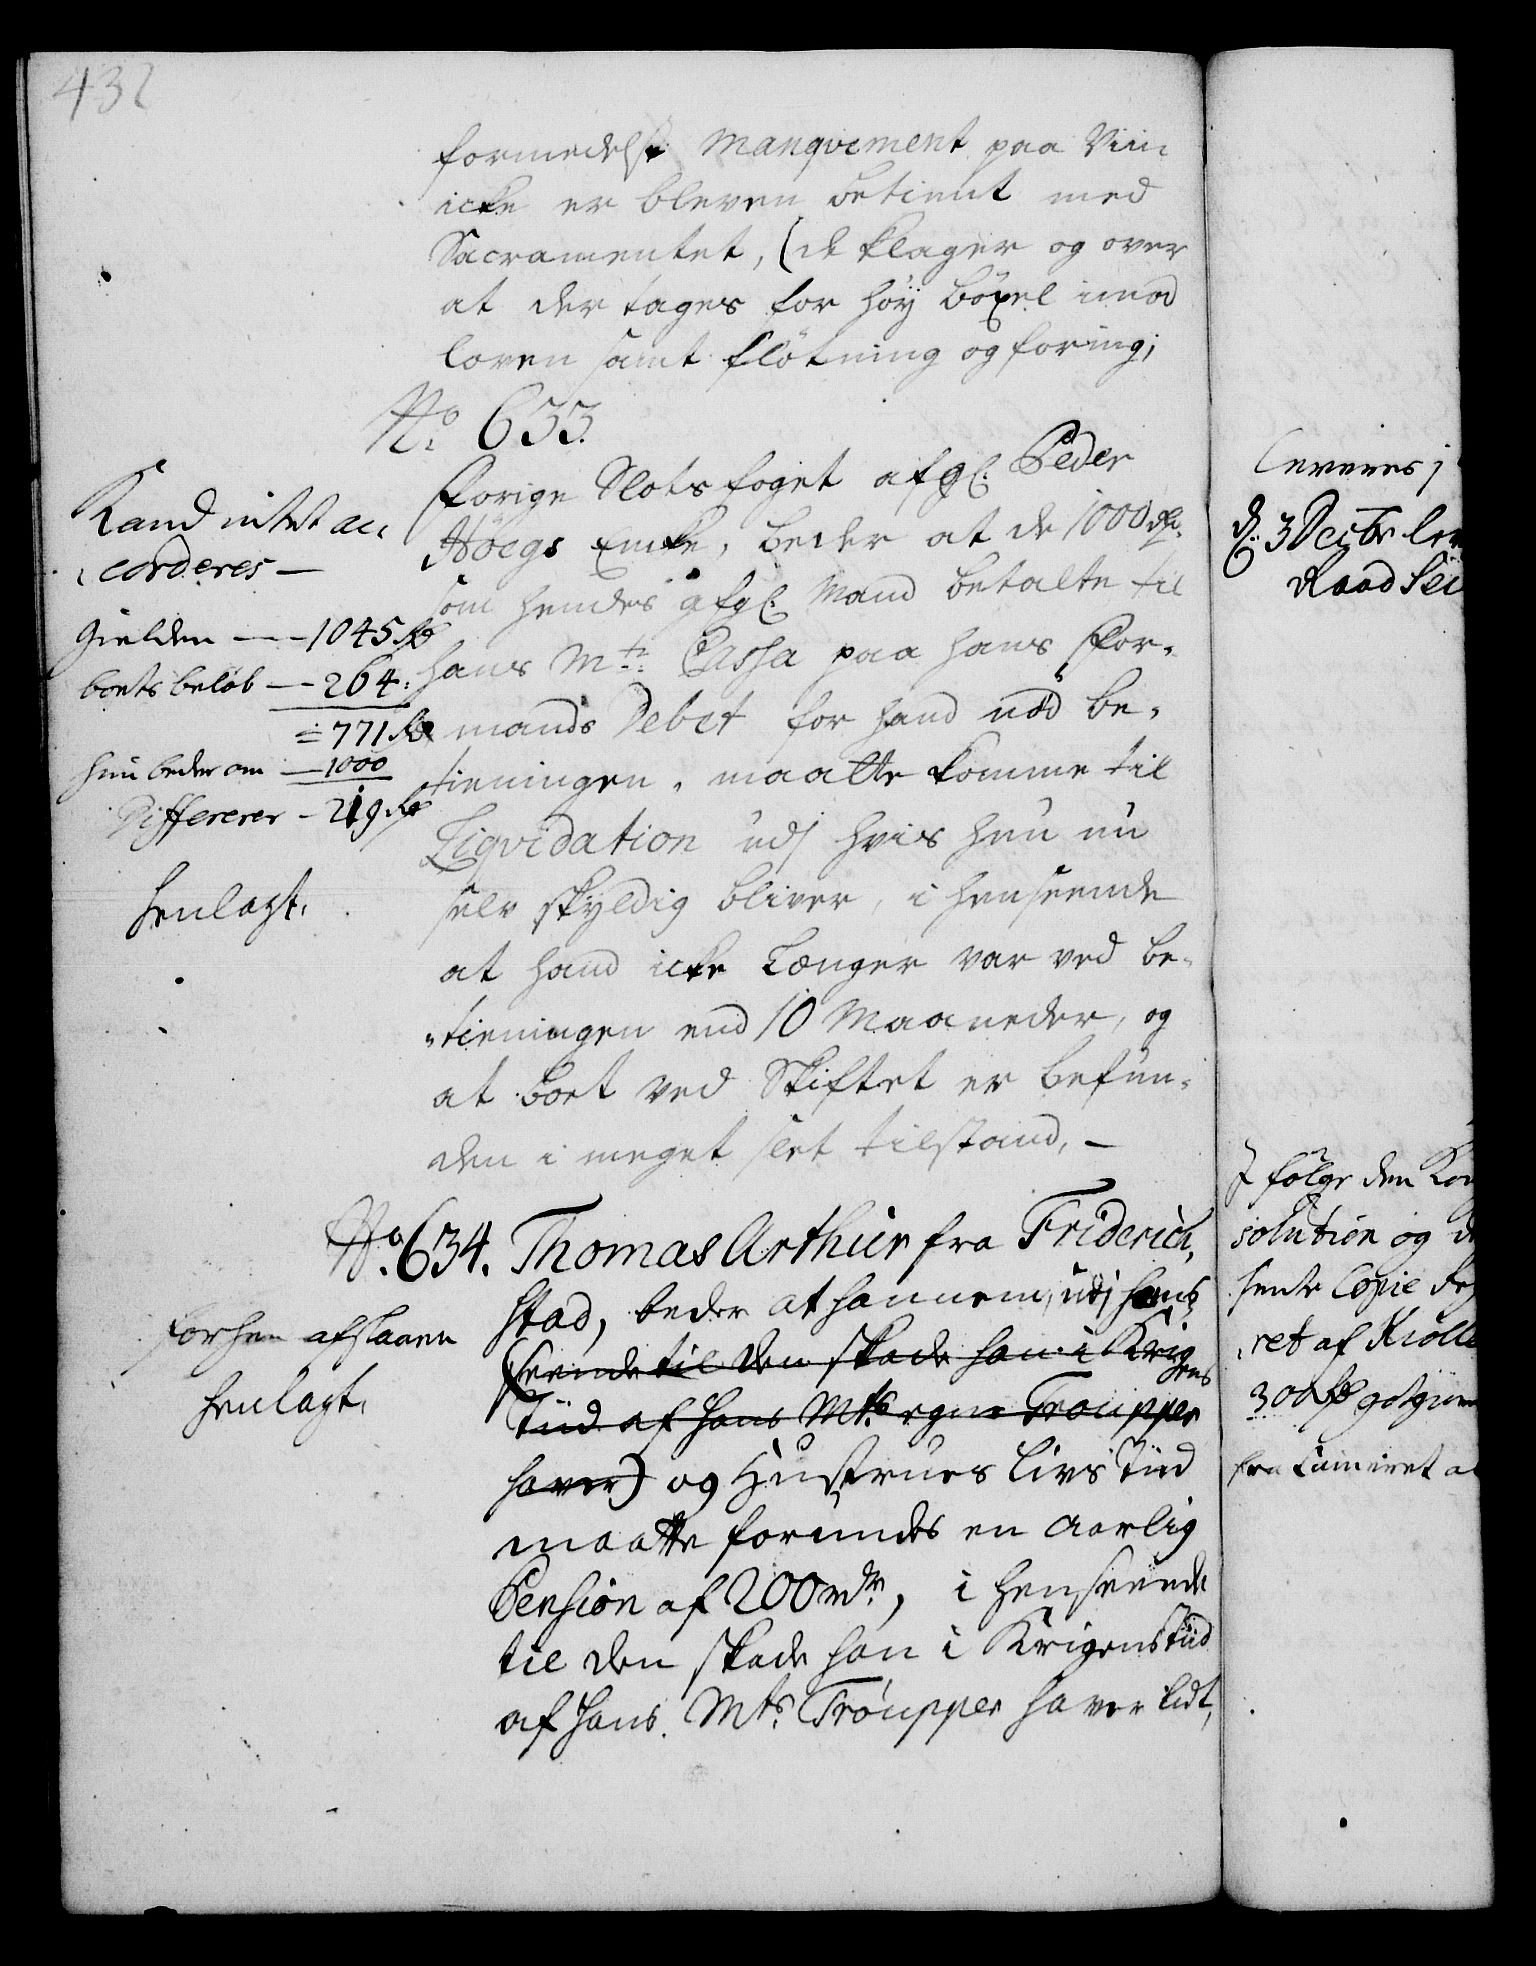 432
formedelst Manqvement paa Viin
icke er bleven betient med
Sacramentet, (de klager og over
at der tages for høÿ böxel imod
loven samt fløtning og foring;
No. 633.
Forige Slotsfoget afgl. Peder
Höegs Encke, beder at de 1000 rdr.
som hendes afgl. Mand betalte til
hans Mts. Cassa paa hans For-
mands Debet for hand nød be-
tieningen, maatte komme til
Liqvidation udj hvis hun nu
selv skyldig bliver, i henseende
at hand icke længer var ved be-
tieningen end 10 Maaneder, og
at boet ved Skiftet er befun-
den i meget slet tilstand, —
Kand intet ac-
corderes —
Gielden — 1045 rdr
boets beløb — 264:
= 771 rdr
hun beder om — 1000
Differerer — 219 rdr
henlagt.
No. 634. Thomas Arthur fra Friderich-
stad, beder at hannem, udj hans
(seende til den skade han i Krigens
Tiid af hans Mts. egne Troupper
haver) og Hustrues Livs Tiid
maatte forundes en aarlig
Pension af 200 rdr., i henseende
til den skade han i Krigens Tiid
af hans Mts. Troupper haver lidt,
forhen afslaaen
henlagt.
leveres j
d. 3 Decbr lev
Raad Sei
J følge den Kon
solution og d
sente Copie
ret af Kiølle
300 rdr
fra Cammeret a